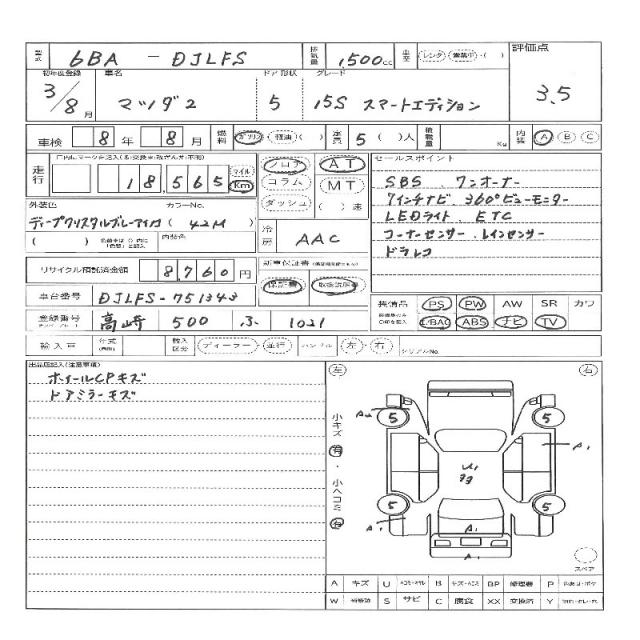 型式 6BA - DJLFS 排気量 1,500cc 車歴 レンタ ・ ( ) 評価点
初年度登録 車名 ドア 形状 グレード
3/8月 マツダ2 5 15S スマートエディション 3.5
車検 8年 8月 燃料 ガソリン 軽油 ( ) 定員 5 ( )人 積載量 Kg 内装 A B C
走行 18,565 マイル Km フロア AT セールスポイント
コラム MT
ダッシュ ( ) 速
SBS . ワンオーナー
外装色 カラーNo.
7インチナビ 360°ビューモニター
ディープクリスタルブルーマイカ ( 42M )
LEDライト . ETC
( ) 内装色 冷房 AAC
コーナーセンサー . レインセンサー
ドラレコ
リサイクル預託済金額 8,760円 新車保証書
保証書 取扱説明書
車台番号 DJLFS-751343
装備品 PS PW AW SR カワ
登録番号 高崎 500 ふ 1021
E/BAG ABS ナビ TV
輸入車 年式 輸入区分 ディーラー ・ 並行 ハンドル 左 ・ 右 シリアルNo.
出品店記入(注意事項)
ホイールCPキズ
ドアミラーキズ
左 右
小キズ 有 ・ 小ヘコミ 有
A2 5 5 A1
U1
5 5
A1 A1
A1
スペア
A キズ U B キズ・ヘコミ BP 修理跡 P
W 補修跡 S サビ C 腐食 XX 交換済 Y